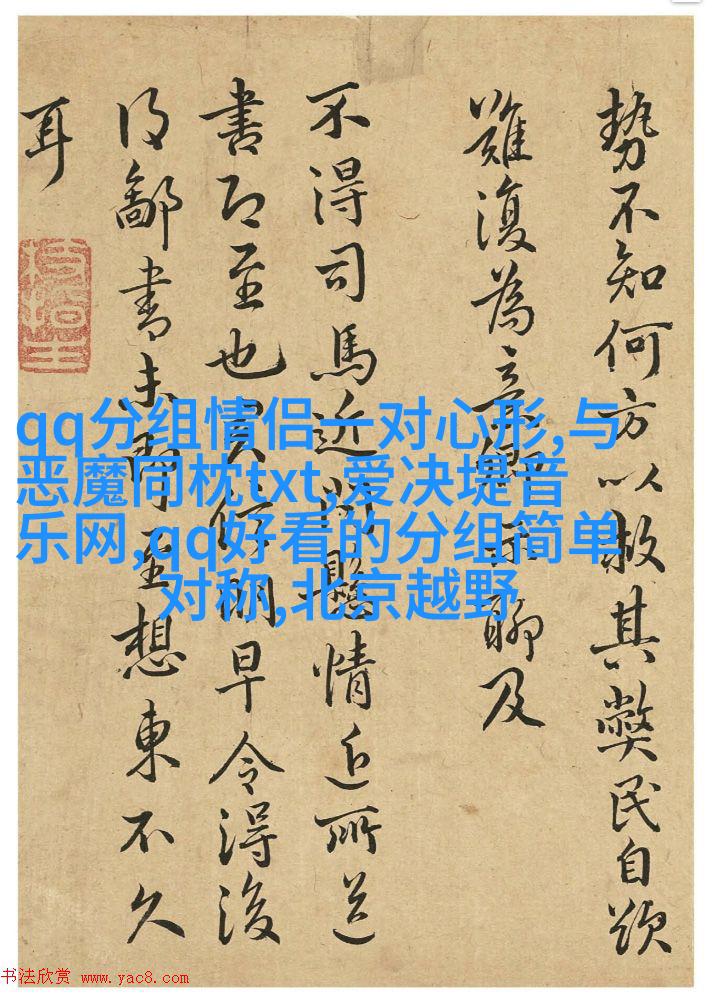 势不知何方以救其弊民自
難復為意卿聊及
不得司馬近問懸情近所送
書即至也明早令得後
得鄙書未至想東不久
耳
qq分组情侣一对心形,与
恶魔同枕txt,爱决堤音
乐网,qq好看的分组简单
对称,北京越野
书法欣赏 www.yac8.com